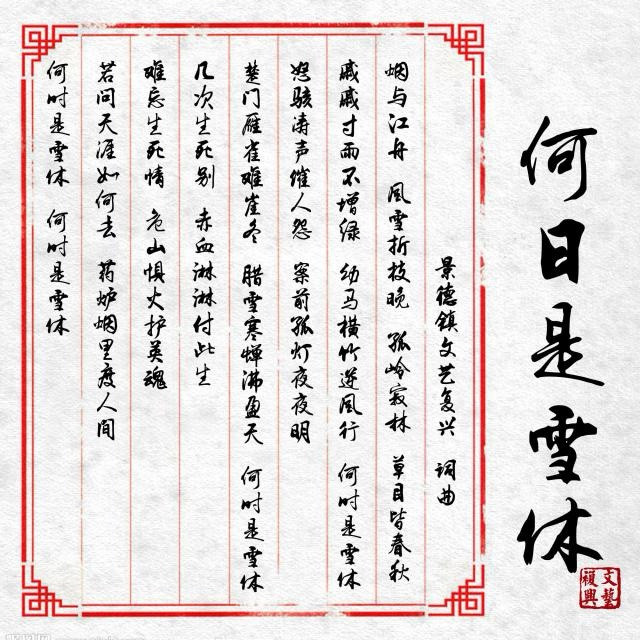 何日是雪休
文藝
複興
景德鎮文艺复兴 词曲
烟与江舟 風雪折枝晚 孤岭寂林 草目皆春秋
戚戚寸雨不增绿 幼马横竹逆風行 何时是雪休
怒骇涛声催人怨 案前孤灯夜夜明
楚门雁雀难崖冬 腊雪寒蝉沸盈天 何时是雪休
几次生死别 赤血淋淋付此生
难忘生死情 危山惧火护英魂
若问天涯如何去 药炉烟里度人间
何时是雪休 何时是雪休